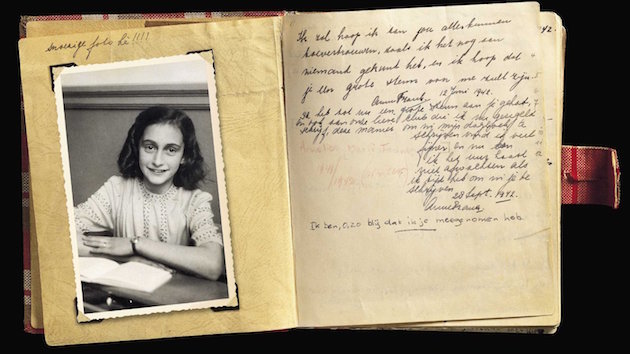 snoezige foto hè !!!!
42.
Ik zal hoop ik aan jou alles kunnen
toevertrouwen, zoals ik het nog aan
niemand gekund heb, en ik hoop dat
je een grote steun voor me zult zijn.
Anne Frank. 12 Juni 1942.
Ik heb tot nu een grote steun aan je gehad,
en ook aan onze lieve club die ik nu geregeld
schrijf, deze manier om in mijn dagboek te
schrijven vind ik veel
fijner en nu kan
ik het uur haast
niet afwachten als
ik tijd heb om in je te
schrijven.
28 Sept. 1942.
Anne Frank.
Ik ben, o, zo blij dat ik je meegenomen heb.